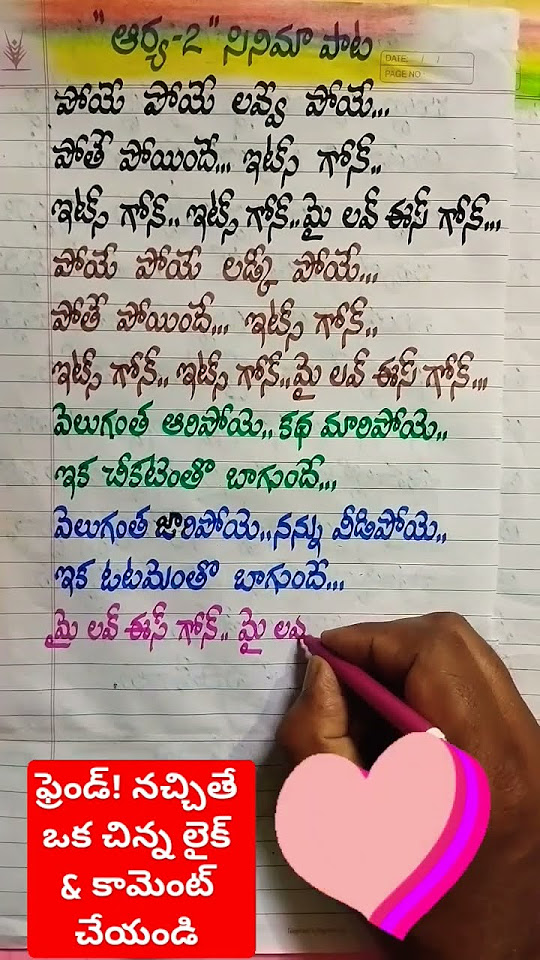 "ఆర్య-2" సినిమా పాట
DATE: / /
PAGE NO.
పోయే పోయే లవ్వే పోయే...
పోతే పోయిందే... ఇట్స్ గోన్..
ఇట్స్ గోన్.. ఇట్స్ గోన్..మై లవ్ ఈస్ గోన్...
పోయే పోయే లడ్కీ పోయే...
పోతే పోయిందే... ఇట్స్ గోన్..
ఇట్స్ గోన్.. ఇట్స్ గోన్..మై లవ్ ఈస్ గోన్...
వెలుగంత ఆరిపోయె.. కథ మారిపోయె..
ఇక చీకటెంతొ బాగుందే...
వెలుగంత జారిపోయె..నన్ను వీడిపోయె..
ఇక ఓటమెంతొ బాగుందే...
మై లవ్ ఈస్ గోన్.. మై లవ
ఫ్రెండ్! నచ్చితే
ఒక చిన్న లైక్
& కామెంట్
చేయండి